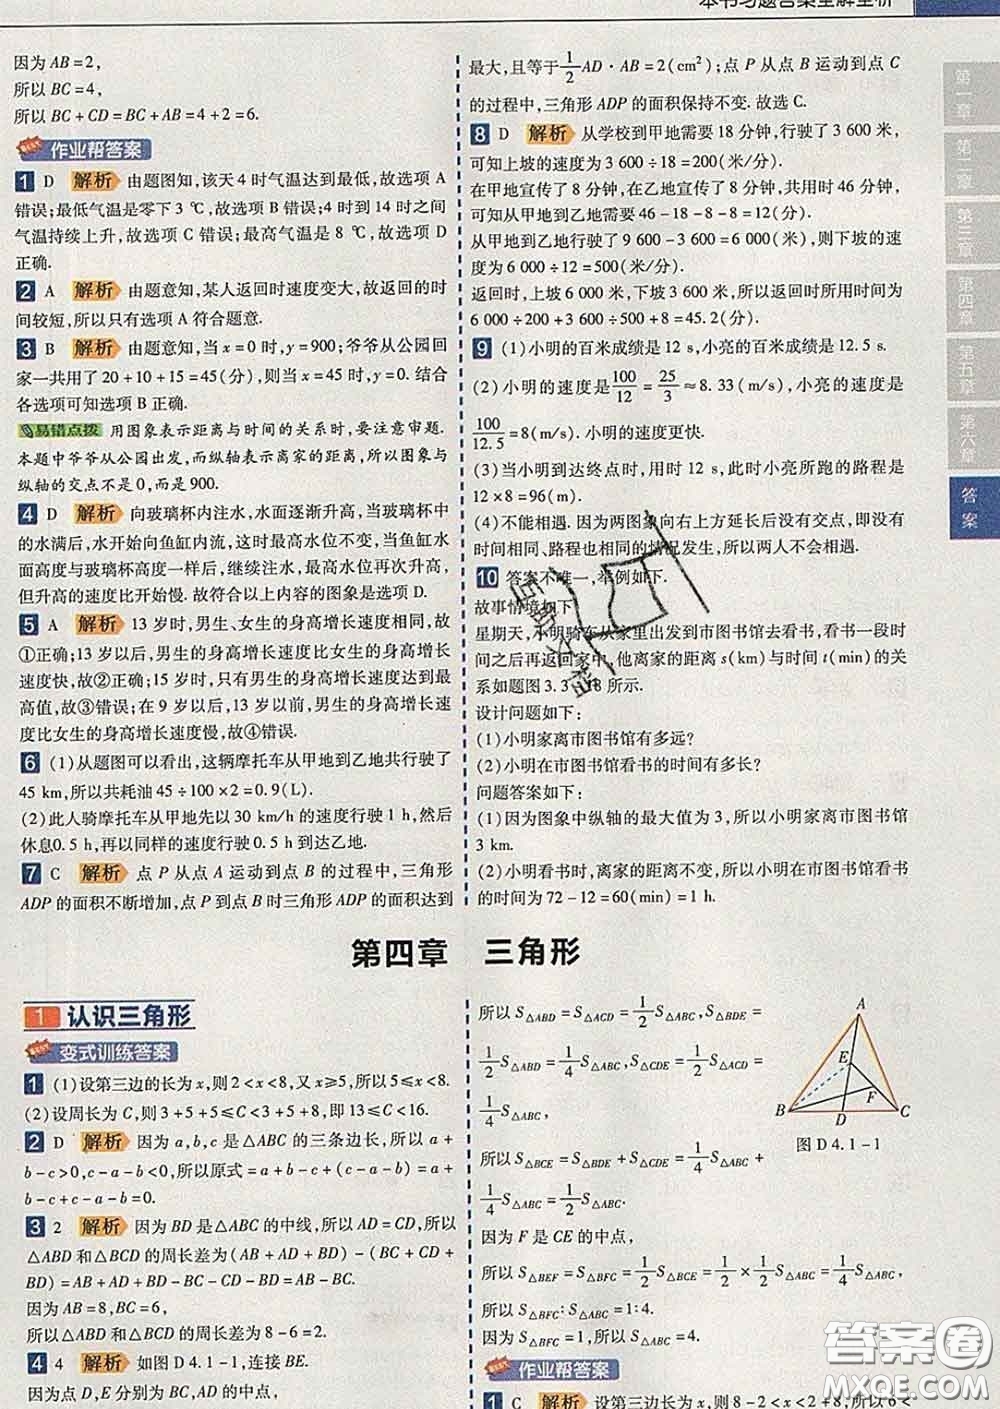 本书习题答案全解全析
因为AB=2,
所以BC=4,
所以BC+CD=BC+AB=4+2=6.
作业帮答案
1 D 解析 由题图知,该天4时气温达到最低,故选项A
错误;最低气温是零下3 ℃,故选项B错误;4时到14时之间
气温持续上升,故选项C错误;最高气温是8 ℃,故选项D
正确.
2 A 解析 由题意知,某人返回时速度变大,故返回的时
间较短,所以只有选项A符合题意.
3 B 解析 由题意知,当x=0时,y=900;爷爷从公园回
家一共用了20+10+15=45(分),则当x=45时,y=0.结合
各选项可知选项B正确.
易错点拨 用图象表示距离与时间的关系时,要注意审题.
本题中爷爷从公园出发,而纵轴表示离家的距离,所以图象与
纵轴的交点不是0,而是900.
4 D 解析 向玻璃杯内注水,水面逐渐升高,当玻璃杯中
的水满后,水开始向鱼缸内流,这时最高水位不变,当鱼缸水
面高度与玻璃杯高度一样后,继续注水,最高水位再次升高,
但升高的速度比开始慢.故符合以上内容的图象是选项D.
5 A 解析 13岁时,男生、女生的身高增长速度相同,故
①正确;13岁以后,男生的身高增长速度比女生的身高增长
速度快,故②正确;15岁时,只有男生的身高增长速度达到最
高值,故③错误;在9岁以后,13岁以前,男生的身高增长速
度比女生的身高增长速度慢,故④错误.
6 (1)从题图可以看出,这辆摩托车从甲地到乙地共行驶了
45 km,所以共耗油45÷100×2=0.9(L).
(2)此人骑摩托车从甲地先以30 km/h的速度行驶1 h,然后
休息0.5 h,再以同样的速度行驶0.5 h到达乙地.
7 C 解析 点P从点A运动到点B的过程中,三角形
ADP的面积不断增加,点P到点B时三角形ADP的面积达到
最大,且等于1/2AD·AB=2(cm²);点P从点B运动到点C
的过程中,三角形ADP的面积保持不变.故选C.
8 D 解析 从学校到甲地需要18分钟,行驶了3 600米,
可知上坡的速度为3 600÷18=200(米/分).
在甲地宣传了8分钟,在乙地宣传了8分钟,共用时46分钟,
可知从甲地到乙地需要46-18-8-8=12(分).
从甲地到乙地行驶了9 600-3 600=6 000(米),则下坡的速
度为6 000÷12=500(米/分).
返回时,上坡6 000米,下坡3 600米,所以返回时所用时间为
6 000÷200+3 600÷500+8=45.2(分).
9 (1)小明的百米成绩是12 s,小亮的百米成绩是12.5 s.
(2)小明的速度是100/12=25/3≈8.33(m/s),小亮的速度是
100/12.5=8(m/s).小明的速度更快.
(3)当小明到达终点时,用时12 s,此时小亮所跑的路程是
12×8=96(m).
(4)不能相遇.因为两图象向右上方延长后没有交点,即没有
时间相同、路程也相同的情况发生,所以两人不会相遇.
10 答案不唯一,举例如下.
故事情境如下
星期天,小明骑车从家里出发到市图书馆去看书,看书一段时
间之后再返回家中,他离家的距离s(km)与时间t(min)的关
系如题图3.3-18所示.
设计问题如下:
(1)小明家离市图书馆有多远?
(2)小明在市图书馆看书的时间有多长?
问题答案如下:
(1)因为图象中纵轴的最大值为3,所以小明家离市图书馆
3 km.
(2)小明看书时,离家的距离不变,所以小明在市图书馆看书
的时间为72-12=60(min)=1 h.
第一章
第二章
第三章
第四章
第五章
第六章
答案
第四章 三角形
1 认识三角形
变式训练答案
1 (1)设第三边的长为x,则2<x<8,又x≥5,所以5≤x<8.
(2)设周长为C,则3+5+5≤C<3+5+8,即13≤C<16.
2 D 解析 因为a,b,c是△ABC的三条边长,所以a+
b-c>0,c-a-b<0,所以原式=a+b-c+(c-a-b)=a+
b-c+c-a-b=0.
3 2 解析 因为BD是△ABC的中线,所以AD=CD,所以
△ABD和△BCD的周长差为(AB+AD+BD)-(BC+CD+
BD)=AB+AD+BD-BC-CD-BD=AB-BC.
因为AB=8,BC=6,
所以△ABD和△BCD的周长差为8-6=2.
4 4 解析 如图D 4.1-1,连接BE.
因为点D,E分别为BC,AD的中点,
所以S△ABD=S△ACD=1/2S△ABC,S△BDE=
1/2S△ABD=1/4S△ABC,S△CDE=
1/4S△ABC,
所以S△BCE=S△BDE+S△CDE=1/4S△ABC+
1/4S△ABC=1/2S△ABC.
因为F是CE的中点,
所以S△BEF=S△BFC=1/2S△BCE=1/2×1/2S△ABC=1/4S△ABC,
所以S△BFC∶S△ABC=1∶4.
因为S△BFC=1,所以S△ABC=4.
A
E
F
B
D
C
图D 4.1-1
作业帮答案
1 C 解析 设第三边长为x,则8-2<x<2+8,所以6<
答案圈
MXQE.COM